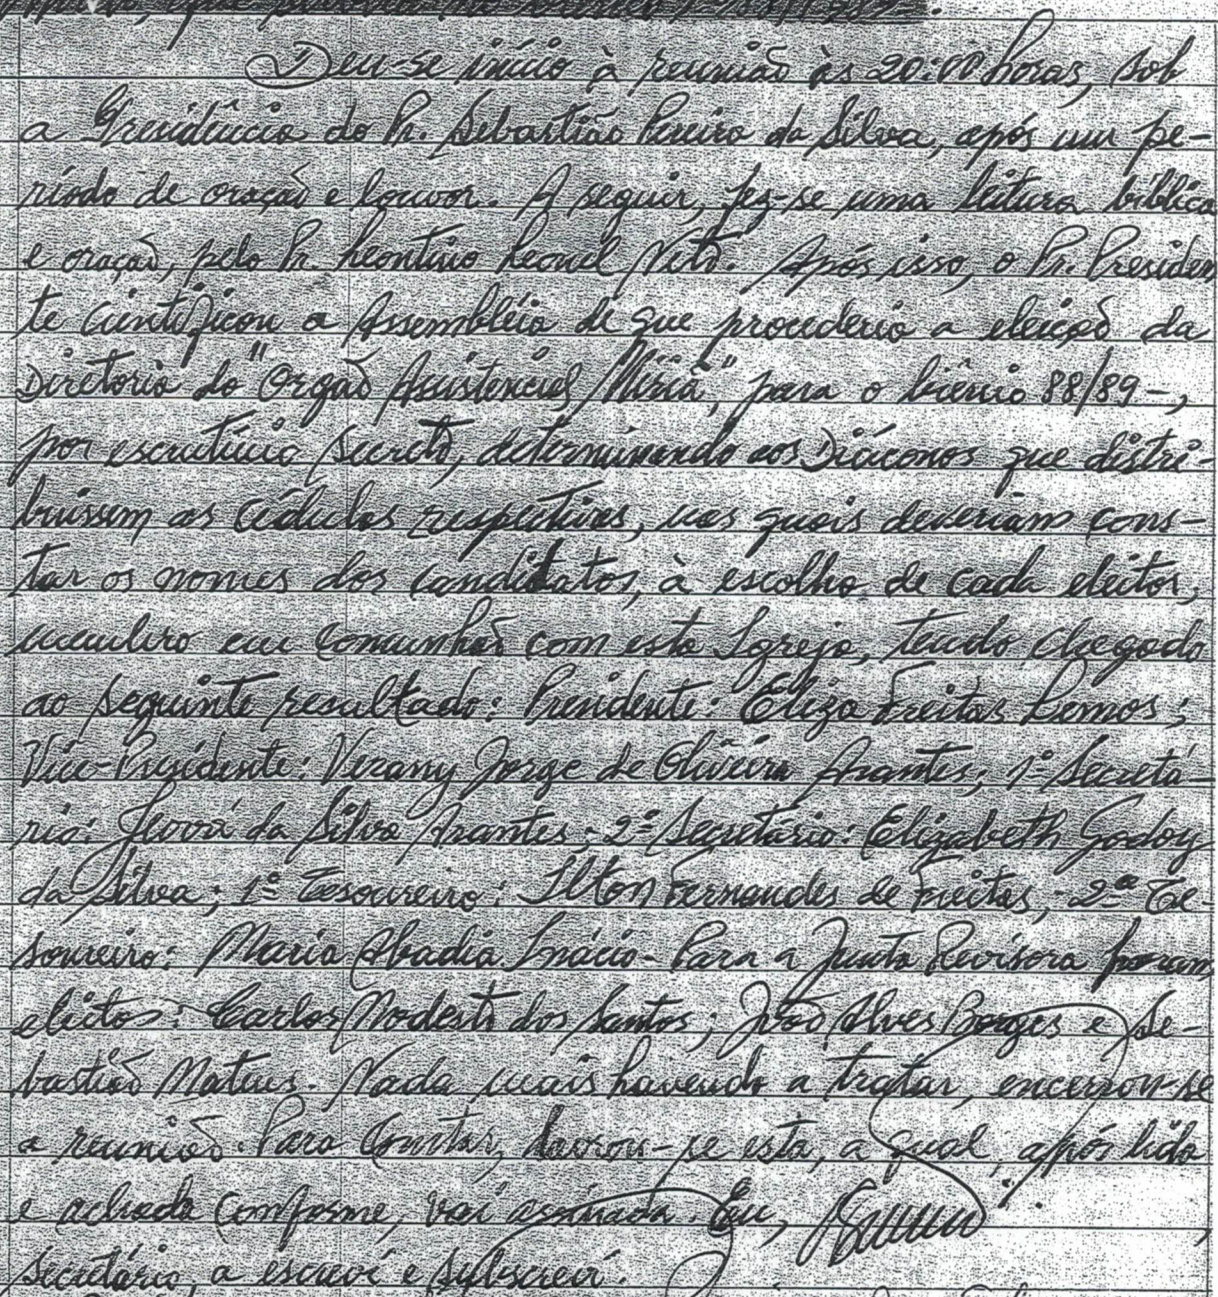 Deu-se início à reunião às 20:00 horas, sob
a Presidência do Pr. Sebastião Pereira da Silva, após um pe-
ríodo de oração e louvor. A seguir, fez-se uma leitura bíblica
e oração, pelo Pr. Leontino Leonel Neto. Após isso, o Pr. Presiden
te cientificou a Assembléia de que procederia a eleição da
Diretoria do "Orgão Assistencial Miriã", para o biênio 88/89-,
por escrutínio secreto, determinando aos Diáconos que distri-
buissem as cédulas respectivas, nas quais deveriam cons-
tar os nomes dos candidatos, à escolha de cada eleitor,
membro em comunhão com esta Igreja, tendo chegado
ao seguinte resultado: Presidente: Eliza Freitas Lemos;
Vice-Presidente: Verany Jorge de Oliveira Arantes; 1º Secretá-
rio: Jeová da Silva Arantes; 2º Secretário: Elizabeth Godoy
da Silva; 1º Tesoureiro: Ilton Fernandes de Freitas; 2ª Te-
soureiro: Maria Abadia Inácio- Para a Junta Revisora foram
eleitos: Carlos Modesto dos Santos; João Alves Borges e Se-
bastião Mateus. Nada mais havendo a tratar, encerrou-se
a reunião. Para Constar, lavrou-se esta, a qual, após lida
e achada conforme, vai assinada. Eu,
secretário, a escreví e subscreví.